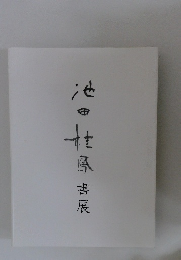 池田桂鳳書展